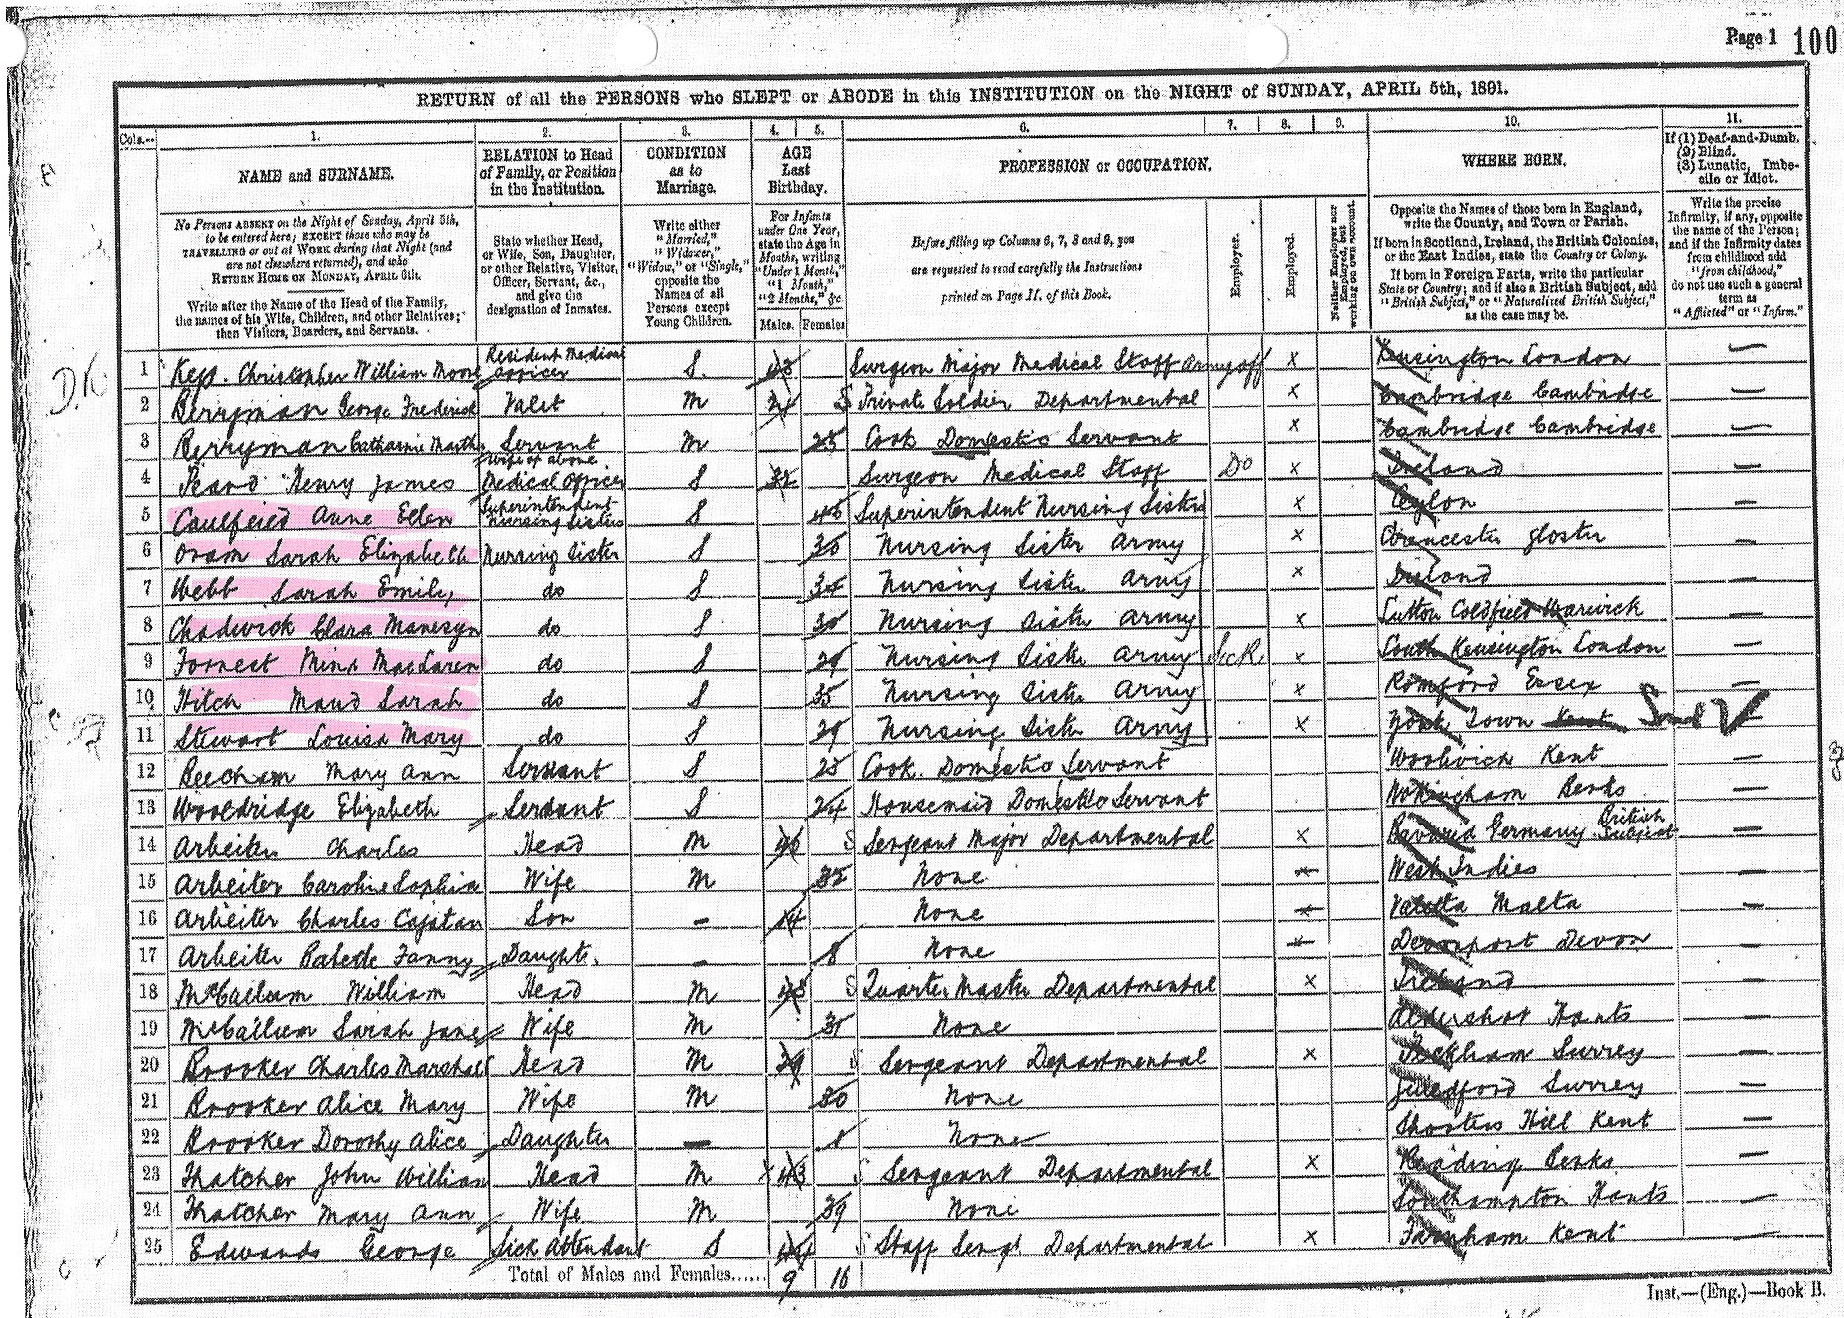 Page 1 100
RETURN of all the PERSONS who SLEPT or ABODE in this INSTITUTION on the NIGHT of SUNDAY, APRIL 5th, 1891.
Cols.— 1. 2. 3. 4. 5. 6. 7. 8. 9. 10. 11.
NAME and SURNAME.
No Persons ABSENT on the Night of Sunday, April 5th, to be entered here; EXCEPT those who may be TRAVELLING or out at WORK during that Night (and are not elsewhere returned), and who RETURN HOME ON MONDAY, APRIL 6th.
Write after the Name of the Head of the Family, the names of his Wife, Children, and other Relatives; then Visitors, Boarders, and Servants.
RELATION to Head of Family, or Position in the Institution.
State whether Head, or Wife, Son, Daughter, or other Relative, Visitor, Officer, Servant, &c., and give the designation of Inmates.
CONDITION as to Marriage.
Write either "Married," "Widower," "Widow," or "Single," opposite the Names of all Persons except Young Children.
AGE Last Birthday.
For Infants under One Year, state the Age in Months, writing "Under 1 Month," "1 Month," "2 Months," &c
Males. Females
PROFESSION or OCCUPATION.
Before filling up Columns 6, 7, 8 and 9, you are requested to read carefully the Instructions printed on Page II. of this Book.
Employer.
Employed.
Neither Employer nor Employed, but working on own account.
WHERE BORN.
Opposite the Names of those born in England, write the County, and Town or Parish.
If born in Scotland, Ireland, the British Colonies, or the East Indies, state the Country or Colony.
If born in Foreign Parts, write the particular State or Country; and if also a British Subject, add "British Subject," or "Naturalised British Subject," as the case may be.
If (1) Deaf-and-Dumb. (2) Blind. (3) Lunatic, Imbecile or Idiot.
Write the precise Infirmity, if any, opposite the name of the Person; and if the Infirmity dates from childhood add "from childhood," do not use such a general term as "Afflicted" or "Infirm."
1 Christopher William Moore Resident Medical Officer S. 43 Surgeon Major Medical Staff Army off x Kensington London —
2 Berryman George Frederick Valet M S Private Soldier Departmental x Cambridge Cambridge —
3 Berryman Catharine Martha Servant wife of above M 25 Cook Domestic Servant x Cambridge Cambridge —
4 Henry James Medical Officer S 32 Surgeon Medical Staff Do x Ireland —
5 Caulfeild Anne Ellen Superintendent Nursing Sisters S Superintendent Nursing Sisters x Ceylon —
6 Oram Sarah Elizabeth Nursing Sister S 30 Nursing Sister Army x Cirencester Gloster —
7 Webb Sarah Emily do S 34 Nursing Sister Army x Ireland —
8 Chadwick Clara Mavesyn do S 30 Nursing Sister Army x Sutton Coldfield Warwick —
9 Forrest Mina MacLaren do S 29 Nursing Sister Army Sick x South Kensington London —
10 Hitch Maud Sarah do S 35 Nursing Sister Army x Romford Essex —
11 Stewart Louisa Mary do S 29 Nursing Sister Army x York Town Kent —
12 Beecham Mary Ann Servant S 25 Cook Domestic Servant Woolwich Kent —
13 Wooldridge Elizabeth Servant S 24 Housemaid Domestic Servant Wokingham Berks —
14 Arbeiter Charles Head M 46 S Sergeant Major Departmental x Bavaria Germany British Subject —
15 Arbeiter Caroline Sophia Wife M 32 None x West Indies —
16 Arbeiter Charles Cajetan Son — 14 None x Valetta Malta —
17 Arbeiter Fanny Daughter — 8 None x Devonport Devon —
18 McCallum William Head M 43 S Quarter Master Departmental x Ireland —
19 McCallum Sarah Jane Wife M 31 None Aldershot Hants —
20 Brooker Charles Marshall Head M 39 S Sergeant Departmental x Peckham Surrey —
21 Brooker Alice Mary Wife M 30 None Guildford Surrey —
22 Brooker Dorothy Alice Daughter — 8 None Shooters Hill Kent —
23 Thatcher John William Head M x 43 S Sergeant Departmental x Reading Berks —
24 Thatcher Mary Ann Wife M 39 None Southampton Hants —
25 Edwards George Sick Attendant S 44 S Staff Sergt Departmental x Farnham Kent —
Total of Males and Females...... 9 16
Inst.—(Eng.)—Book B.